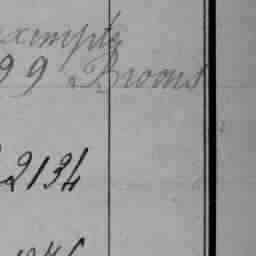 exempts
99 Brooms
2134